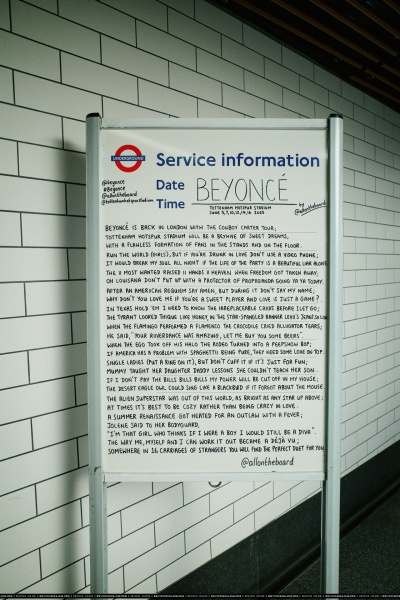 UNDERGROUND
Service information
@Beyonce
#Beyonce
@allontheboard
@tottenhamhotspurstadium
Date
Time
BEYONCÉ
TOTTENHAM HOTSPUR STADIUM
JUNE 5, 7, 10, 12, 14, 16 2025
by
@allontheboard
BEYONCÉ IS BACK IN LONDON WITH THE COWBOY CARTER TOUR;
TOTTENHAM HOTSPUR STADIUM WILL BE A BEYHIVE OF SWEET DREAMS,
WITH A FLAWLESS FORMATION OF FANS IN THE STANDS AND ON THE FLOOR.
RUN THE WORLD (GIRLS), BUT IF YOU'RE DRUNK IN LOVE DON'T USE A VIDEO PHONE;
IT WOULD BREAK MY SOUL ALL NIGHT IF THE LIFE OF THE PARTY IS A BEAUTIFUL LIAR ALONE.
THE II MOST WANTED RAISED II HANDS II HEAVEN WHEN FREEDOM GOT TAKEN AWAY;
OH LOUISIANA DON'T PUT UP WITH A PROTECTOR OF PROPAGANDA GOING YA YA TODAY.
AFTER AN AMERICAN REQUIEM SAY AMEN, BUT DURING IT DON'T SAY MY NAME;
WHY DON'T YOU LOVE ME IF YOU'RE A SWEET PLAYER AND LOVE IS JUST A GAME?
IN TEXAS HOLD 'EM I NEED TO KNOW THE IRREPLACEABLE CARDS BEFORE I LET GO;
THE TYRANT LOOKED THIQUE LIKE HONEY IN THE STAR-SPANGLED BANNER LEVII'S JEANS SO LOW
WHEN THE FLAMINGO PERFORMED A FLAMENCO THE CROCODILE CRIED ALLIGATOR TEARS;
HE SAID, "YOUR RIVERDANCE WAS AMAZING, LET ME BUY YOU SOME BEERS".
WHEN THE EGO TOOK OFF HIS HALO THE RODEO TURNED INTO A PEEPSHOW BOP;
IF AMERICA HAS A PROBLEM WITH SPAGHETTII BEING PURE, THEY NEED SOME LOVE ON TOP.
SINGLE LADIES (PUT A RING ON IT), BUT DON'T CUFF IT IF IT'S JUST FOR FUN;
MUMMY TAUGHT HER DAUGHTER DADDY LESSONS SHE COULDN'T TEACH HER SON.
IF I DON'T PAY THE BILLS BILLS BILLS MY POWER WILL BE CUT OFF IN MY HOUSE;
THE DESERT EAGLE OWL COULD SING LIKE A BLACKBIIRD IF IT FORGOT ABOUT THE MOUSE.
THE ALIEN SUPERSTAR WAS OUT OF THIS WORLD, AS BRIGHT AS ANY STAR UP ABOVE;
AT TIMES IT'S BEST TO BE COZY RATHER THAN BEING CRAZY IN LOVE.
A SUMMER RENAISSANCE GOT HEATED FOR AN OUTLAW WITH A FEVER;
JOLENE SAID TO HER BODYGUARD,
"I'M THAT GIRL WHO THINKS IF I WERE A BOY I WOULD STILL BE A DIVA".
THE WAY ME, MYSELF AND I CAN WORK IT OUT BECAME A DÉJÀ VU;
SOMEWHERE IN 16 CARRIAGES OF STRANGERS YOU WILL FIND THE PERFECT DUET FOR YOU
@allontheboard